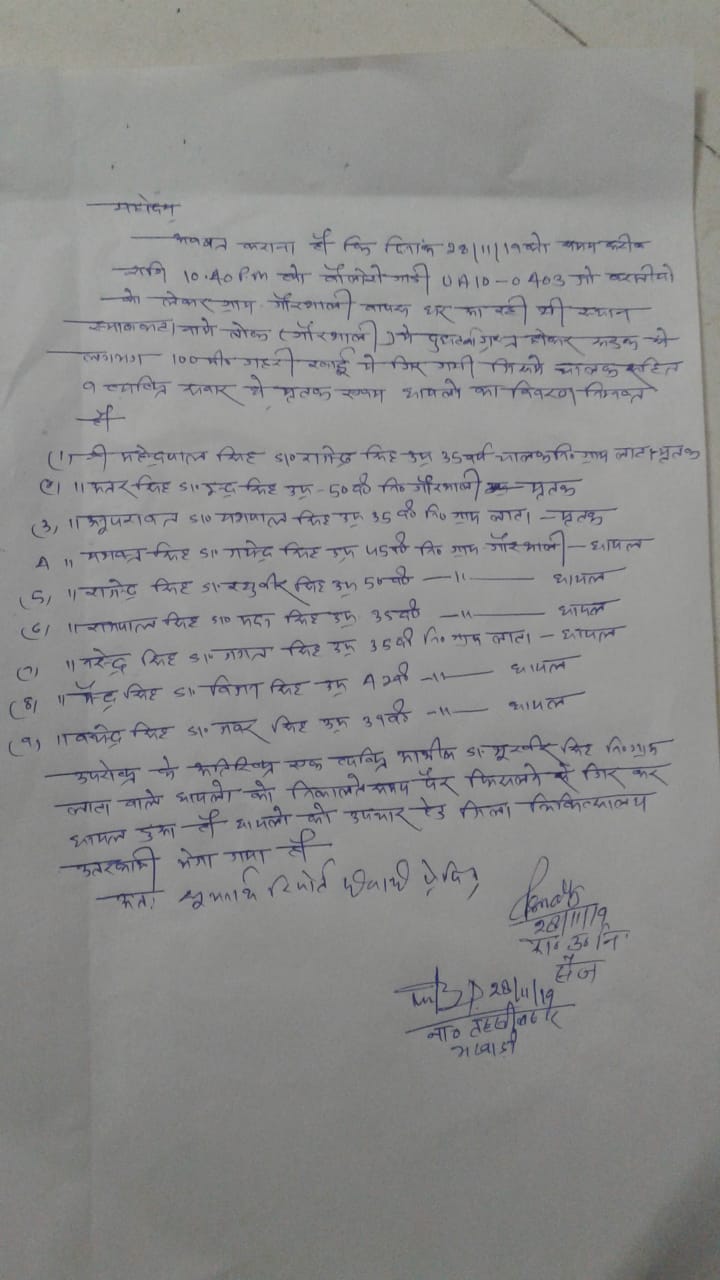 महोदय,
अवगत कराना है कि दिनांक 28/11/19 को समय करीब
रात्रि 10.40 P.m को बोलेरो गाडी UA10-0403 जो बरातीयो
को लेकर ग्राम गौरशाली वापस घर आ रही थी स्थान
नामे तोक (गौरशाली) मे दुघर्टनाग्रस्त होकर सडक से
लगभग 100 मी० गहरी खाई मे गिर गयी जिसमे चालक सहित
9 व्यक्ति सवार थे मृतक एवम घायलो का विवरण निम्नवत
है।
(1) श्री महेन्द्रपाल सिंह S/० राजेन्द्र सिंह उम्र 35 वर्ष चालक नि० ग्राम लाटा - मृतक
(2) " सिंह S/० इन्द्र सिंह उम्र - 50 वर्ष नि० गौरशाली - मृतक
(3) " S/० सिंह उम्र 35 वर्ष नि० ग्राम लाटा - मृतक
4 " भगवान सिंह S/० गजेन्द्र सिंह उम्र 45 वर्ष नि० ग्राम गौरशाली - घायल
(5) " राजेन्द्र सिंह S/० रघुवीर सिंह उम्र 50 वर्ष —"— घायल
(6) " रामपाल सिंह S/० सिंह उम्र 35 वर्ष —"— घायल
(7) " नरेन्द्र सिंह S/० जगत सिंह उम्र 35 वर्ष नि० ग्राम लाटा - घायल
(8) " सिंह S/० सिंह उम्र 42 वर्ष —"— घायल
(9) " सिंह S/० सिंह उम्र 39 वर्ष —"— घायल
उपरोक्त के अतिरिक्त एक व्यक्ति S/० सिंह नि० ग्राम
लाटा वाले घायलो को निकालते समय पैर फिसलने से गिर कर
घायल हुआ है। घायलो को उपचार हेतु जिला चिकित्सालय
उत्तरकाशी भेजा गया है।
अतः सूचनार्थ रिपोर्ट सेवा मे प्रेषित
28/11/19
रा० उ० नि०
सैंज
28/11/19
ना० तहसीलदार
भटवाडी